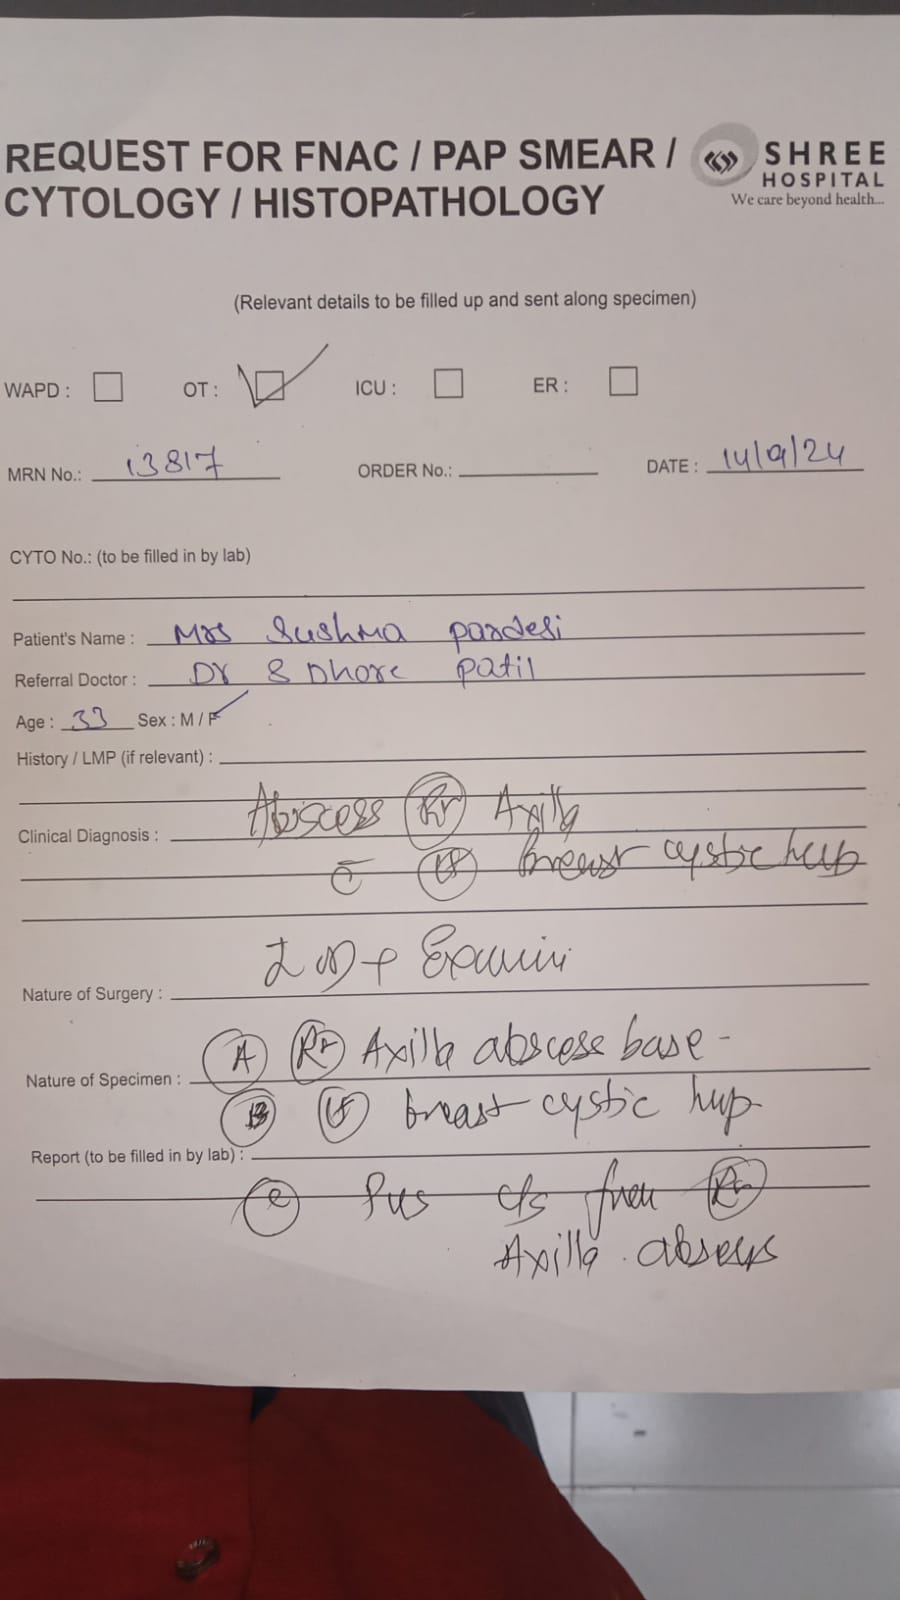 REQUEST FOR FNAC / PAP SMEAR /
CYTOLOGY / HISTOPATHOLOGY
SHREE
HOSPITAL
We care beyond health...
(Relevant details to be filled up and sent along specimen)
WAPD : OT : ICU : ER :
MRN No.: 13817 ORDER No.: DATE : 14/9/24
CYTO No.: (to be filled in by lab)
Patient's Name : Mrs Sushma pardesi
Referral Doctor : Dr S Dhore patil
Age : 33 Sex : M / F
History / LMP (if relevant) :
Clinical Diagnosis : Abscess Rt Axilla
c̄ Lt breast cystic
Nature of Surgery : I &D +
Nature of Specimen : A Rt Axilla abscess base -
B Lt breast cystic
Report (to be filled in by lab) :
C Pus c/s from Rt
Axilla abscess